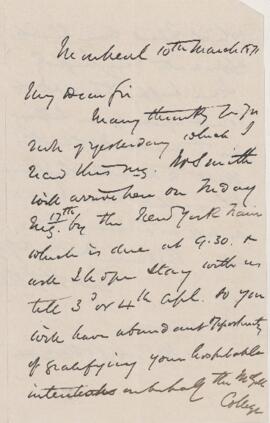 Montreal 10th March 1871
My Dear Sir
Many thanks for yr
note of yesterday which I
read this mg. Mr Smith
will arrive here on Friday
mg. 17th by the New York Train
which is due at 9.30. &
will I hope stay with us
till 3d or 4th Apl. so you
will have abundant opportunity
of gratifying your hospitable
intentions on behalf the McGill
College